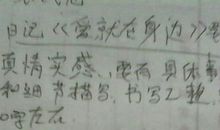 日记《爱就在身边》
真情实感、要有具体事
和细节描写,书写工整
0字左右